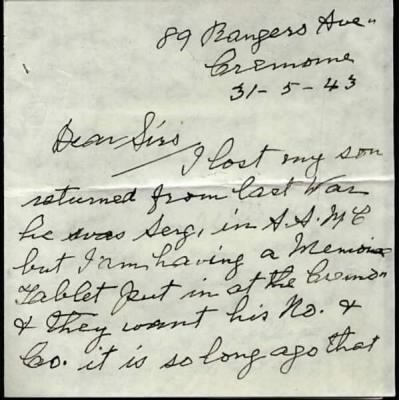 89 Rangers Ave"
Cremorne
31-5-43
Dear Sirs
I lost my son
returned from last War
he was Serg, in A.A.M.C
but I am having a Memoria
Tablet put in at the Cremo"
& they want his No. &
Co. it is so long ago that